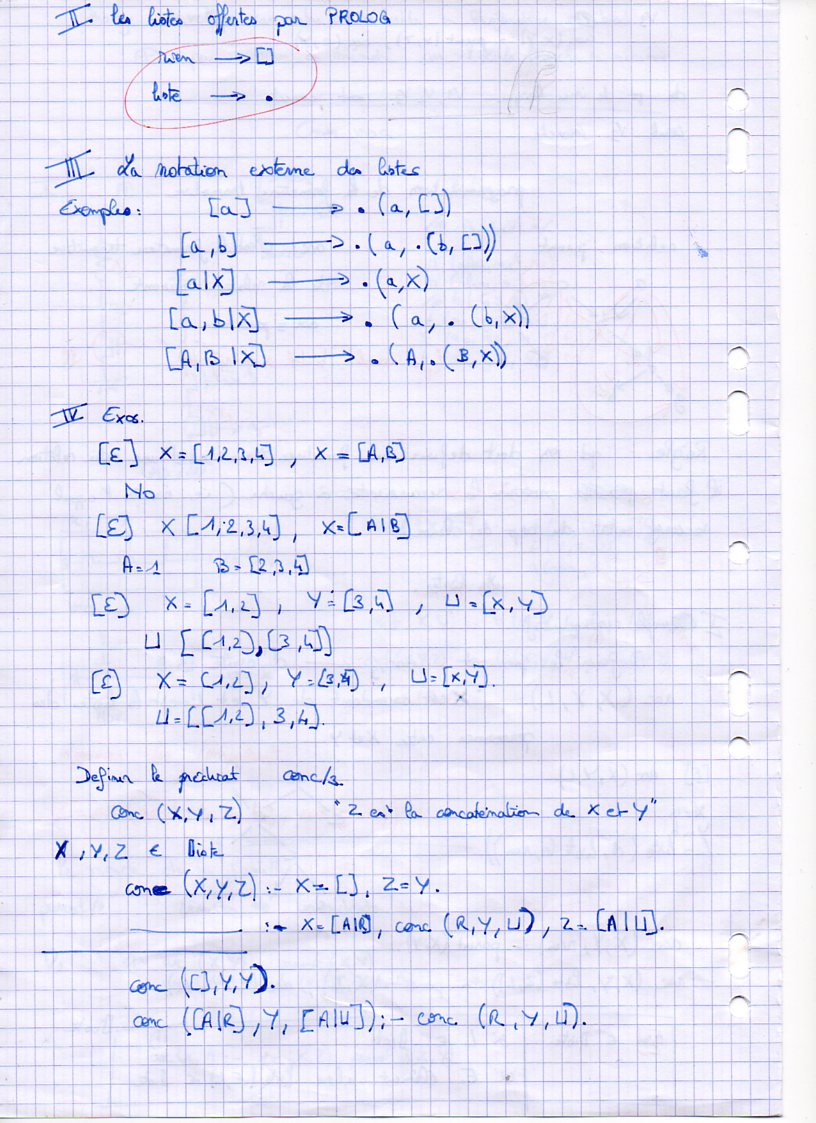 II les listes offertes par PROLOG
rien → []
liste → .
III La notation externe des listes
Exemples: [a] → .(a, [])
[a,b] → .(a, .(b, []))
[a|X] → .(a,X)
[a,b|X] → .(a, .(b,X))
[A,B|X] → .(A,.(B,X))
IV Exos.
[E] X=[1,2,3,4] , X=[A,B]
No
[E] X [1,2,3,4] , X=[A|B]
A=1 B=[2,3,4]
[E] X=[1,2] , Y=[3,4] , U=[X,Y]
U [[1,2],[3,4]]
[E] X=[1,2], Y=[3,4] , U=[X,Y].
U=[[1,2], 3,4].
Definir le prédicat conc/3.
conc (X,Y,Z) "Z est la concaténation de X et Y"
X,Y,Z ∈ Liste
conc (X,Y,Z) :- X=[], Z=Y.
:- X=[A|R], conc (R,Y,U), Z=[A|U].
conc ([],Y,Y).
conc ([A|R],Y,[A|U]):- conc (R,Y,U).